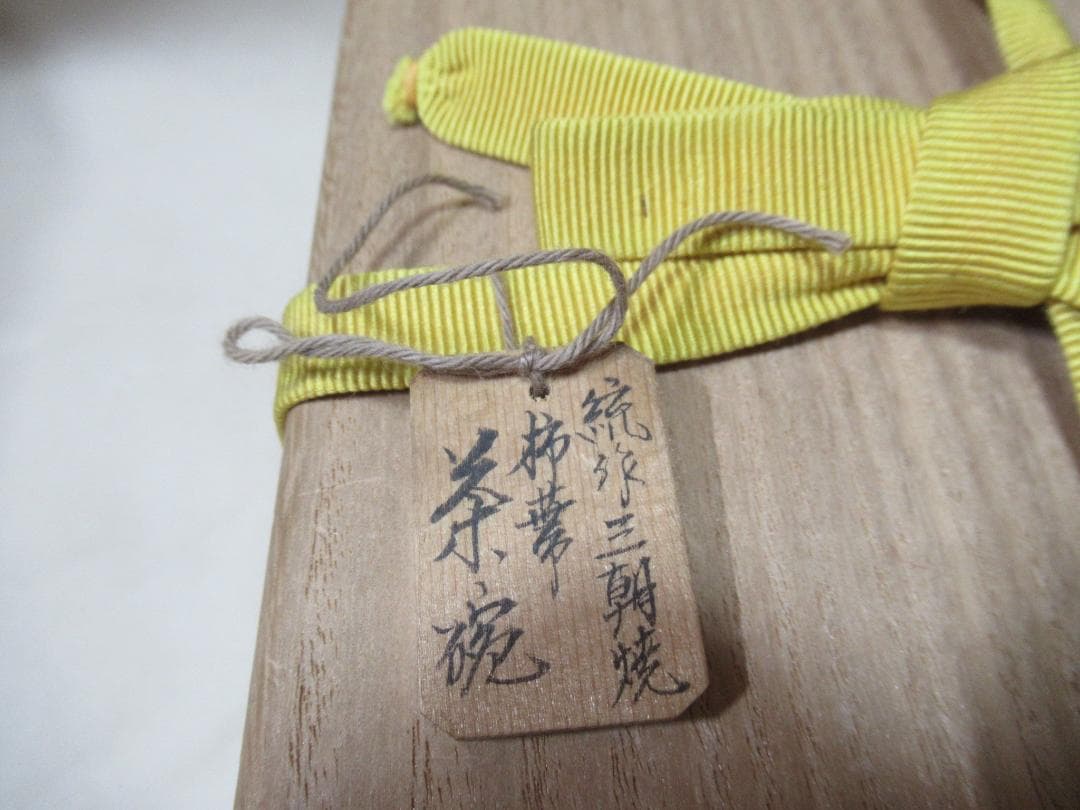 統作三朝焼
柿蔕
茶碗